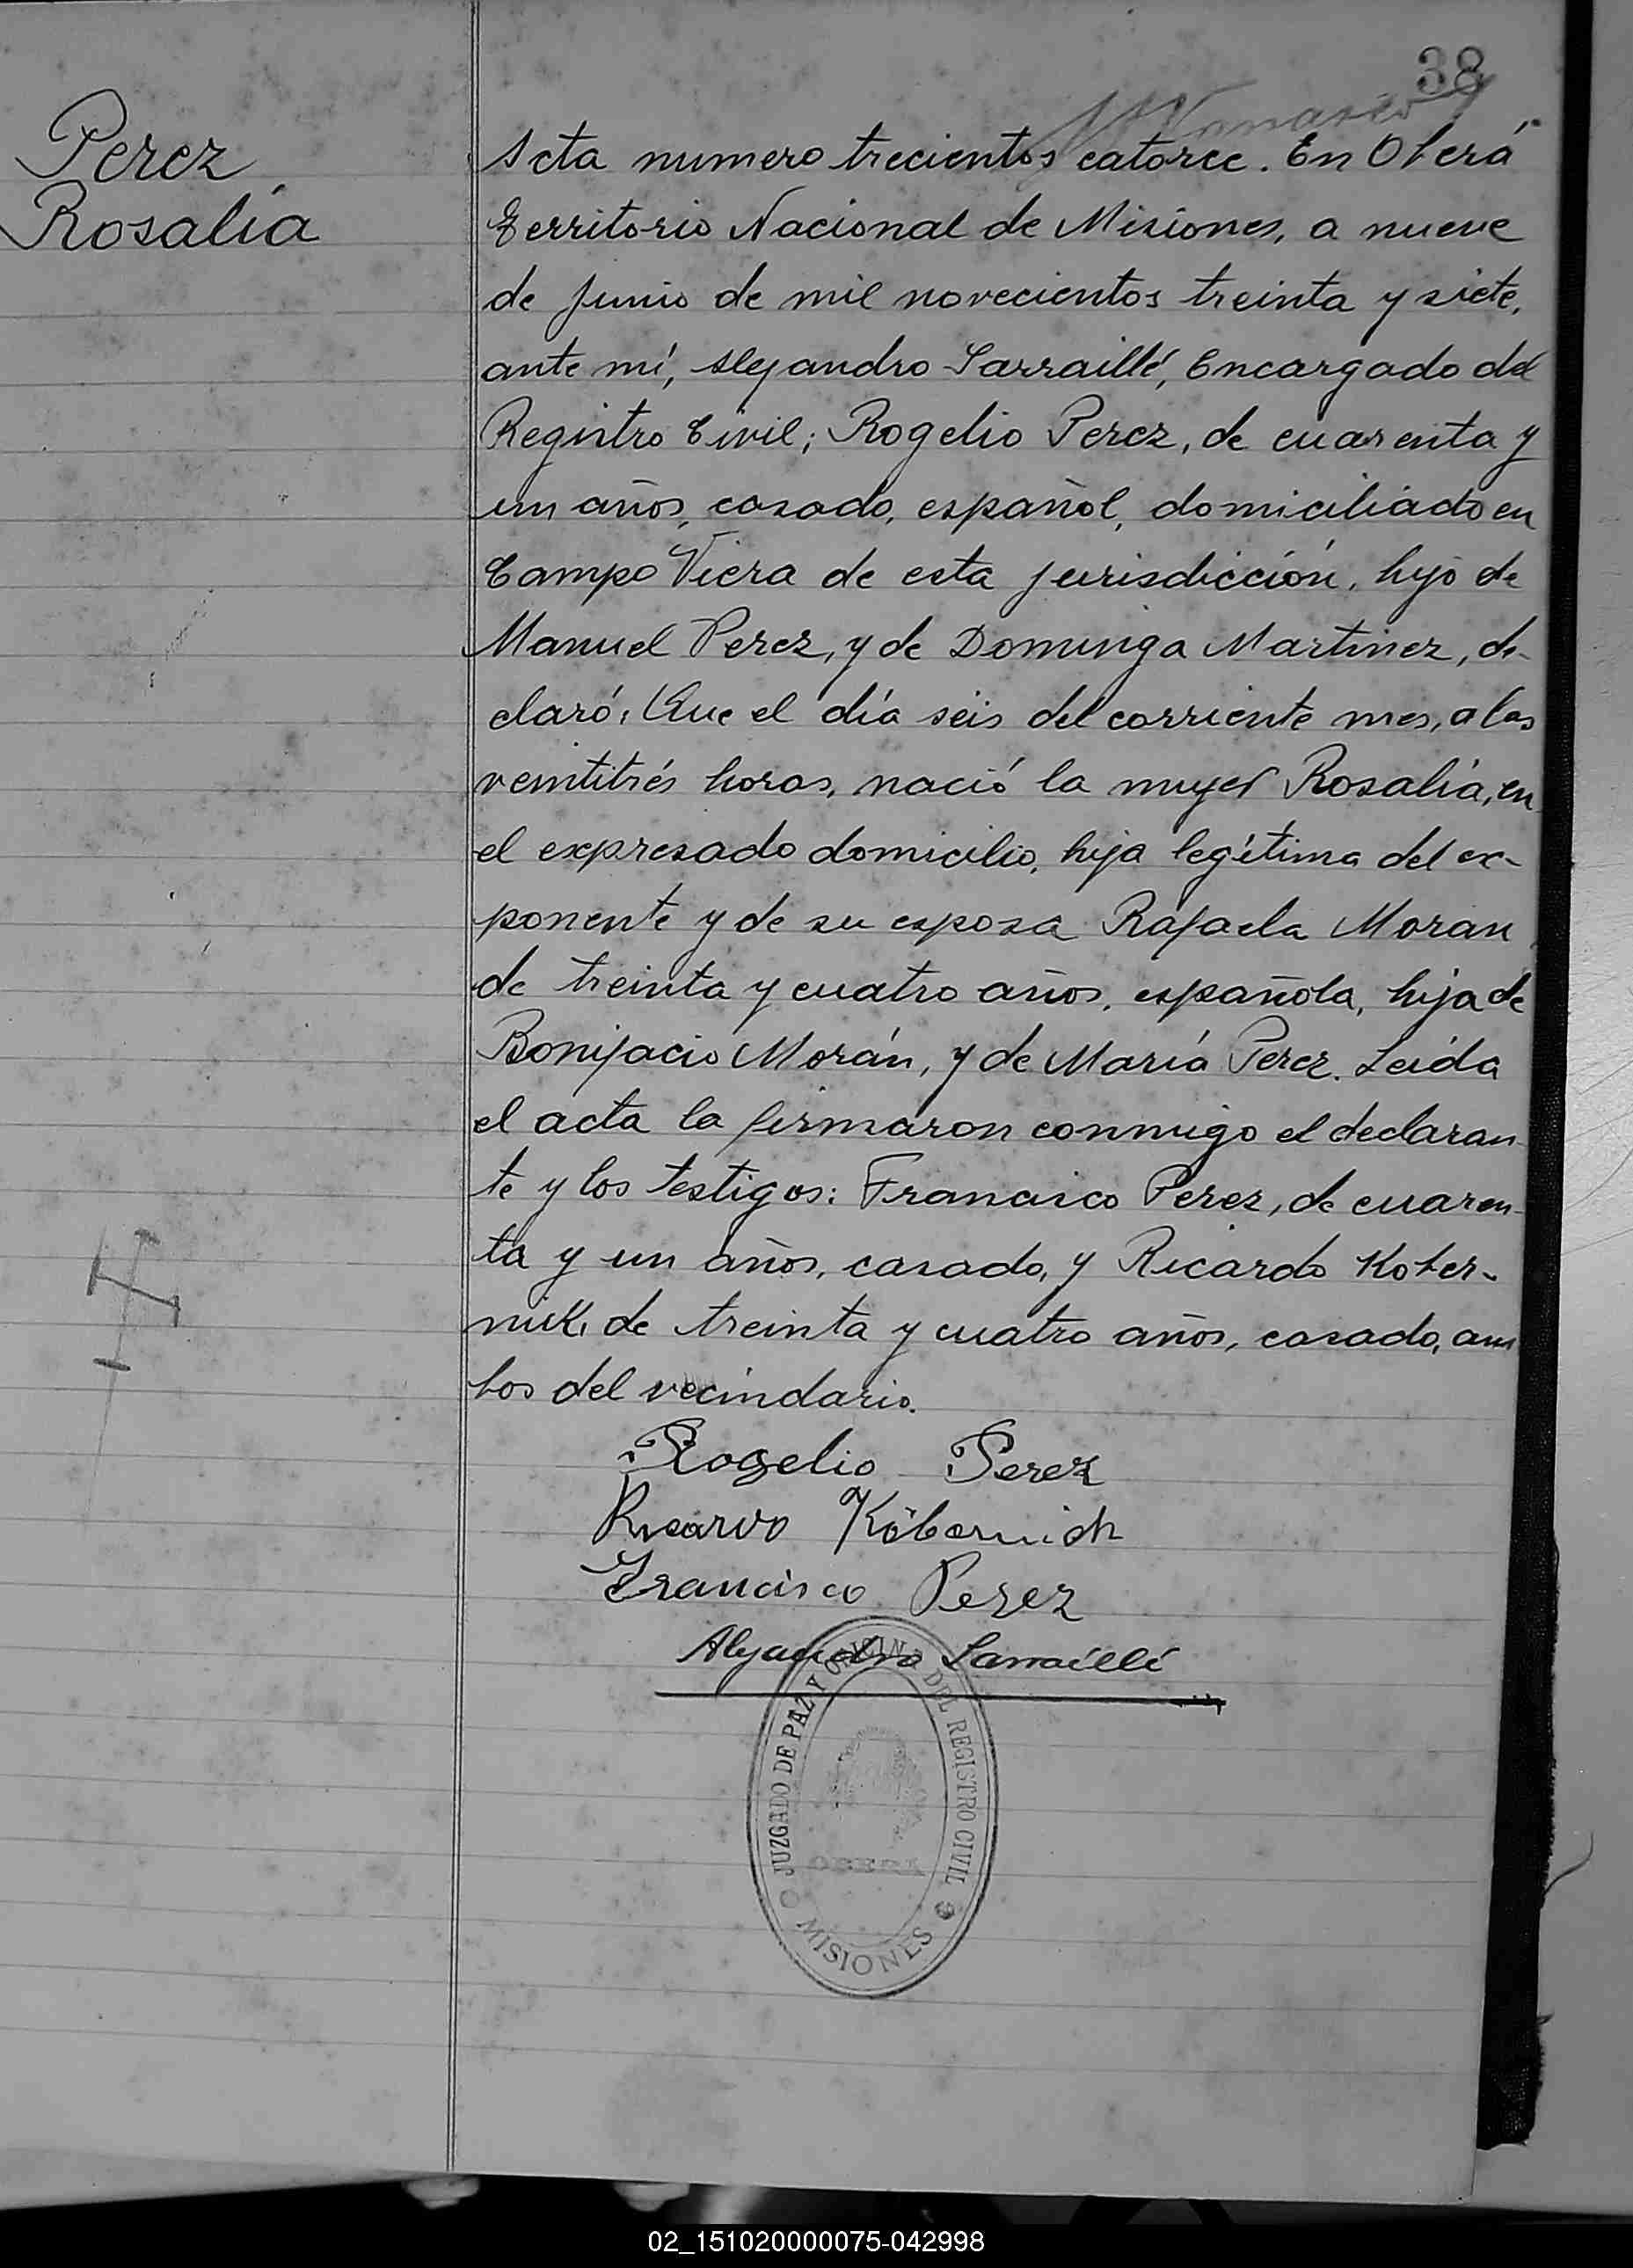 38
Perez
Rosalía
Acta numero trecientos catorce. En Oberá
Territorio Nacional de Misiones, a nueve
de junio de mil novecientos treinta y siete,
ante mí, Alejandro Sarraillé, Encargado del
Registro Civil; Rogelio Perez, de cuarenta y
un años, casado, español, domiciliado en
Campo Viera de esta jurisdicción, hijo de
Manuel Perez, y de Dominga Martinez, de-
claró: Que el día seis del corriente mes, a las
veintitrés horas, nació la mujer Rosalía, en
el expresado domicilio, hija legítima del ex-
ponente y de su esposa Rafaela Moran
de treinta y cuatro años, española, hija de
Bonifacio Morán, y de María Perez. Leída
el acta la firmaron conmigo el declaran
te y los testigos: Francisco Perez, de cuaren
ta y un años, casado, y Ricardo Kober-
nik, de treinta y cuatro años, casado, am
bos del vecindario.
Rogelio Perez
Ricardo Köbernich
Francisco Perez
Alejandro Sarraillé
JUZGADO DE PAZ Y OFICINA DEL REGISTRO CIVIL
OBERA
MISIONES
02_151020000075-042998